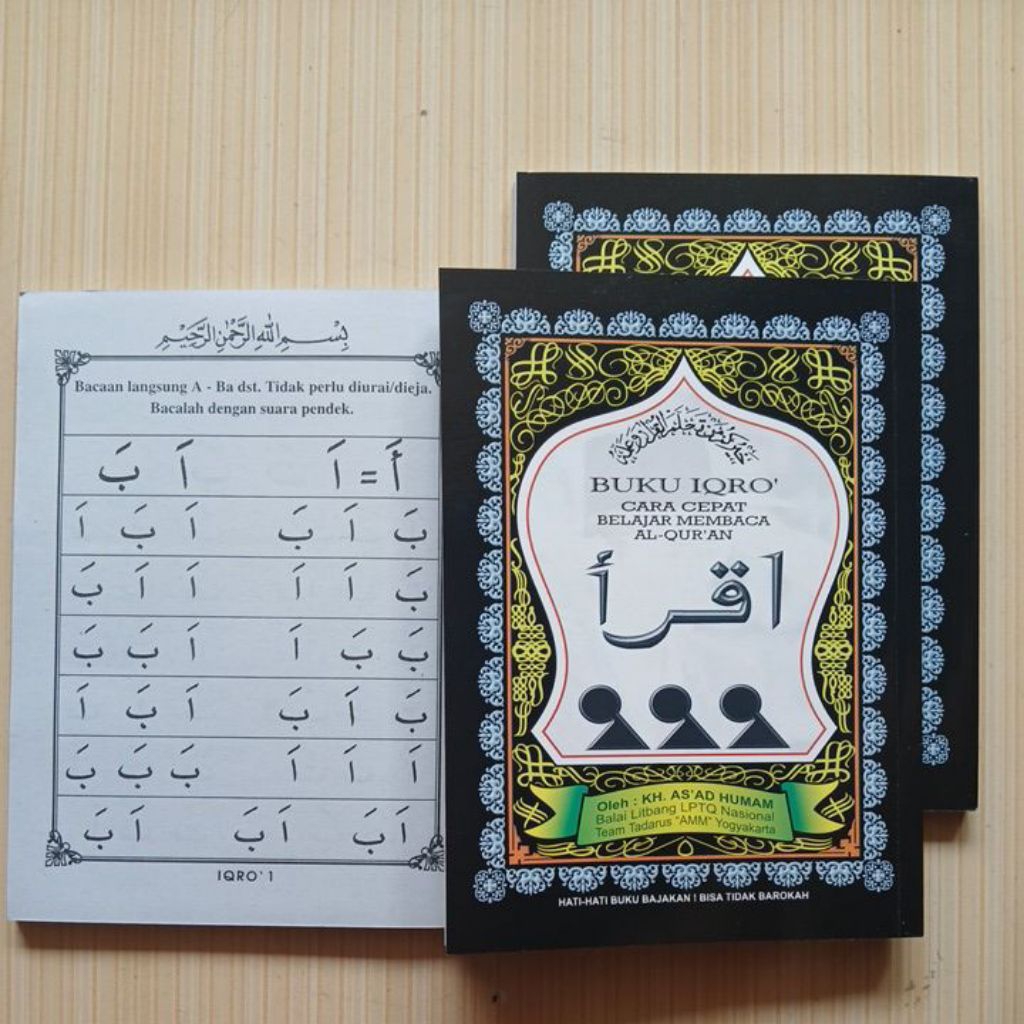 بِسْمِ اللهِ الرَّحْمٰنِ الرَّحِيْمِ
Bacaan langsung A - Ba dst. Tidak perlu diurai/dieja.
Bacalah dengan suara pendek.
أَ = اَ اَ بَ
بَ اَ بَ اَ بَ اَ
بَ اَ اَ اَ اَ بَ
بَ بَ اَ اَ بَ بَ
بَ اَ بَ اَ بَ اَ
اَ اَ اَ بَ بَ بَ
اَ بَ اَ بَ اَ بَ
IQRO' 1
BUKU IQRO'
CARA CEPAT
BELAJAR MEMBACA
AL-QUR'AN
اقرأ
Oleh : KH. AS'AD HUMAM
Balai Litbang LPTQ Nasional
Team Tadarus "AMM" Yogyakarta
HATI-HATI BUKU BAJAKAN ! BISA TIDAK BAROKAH